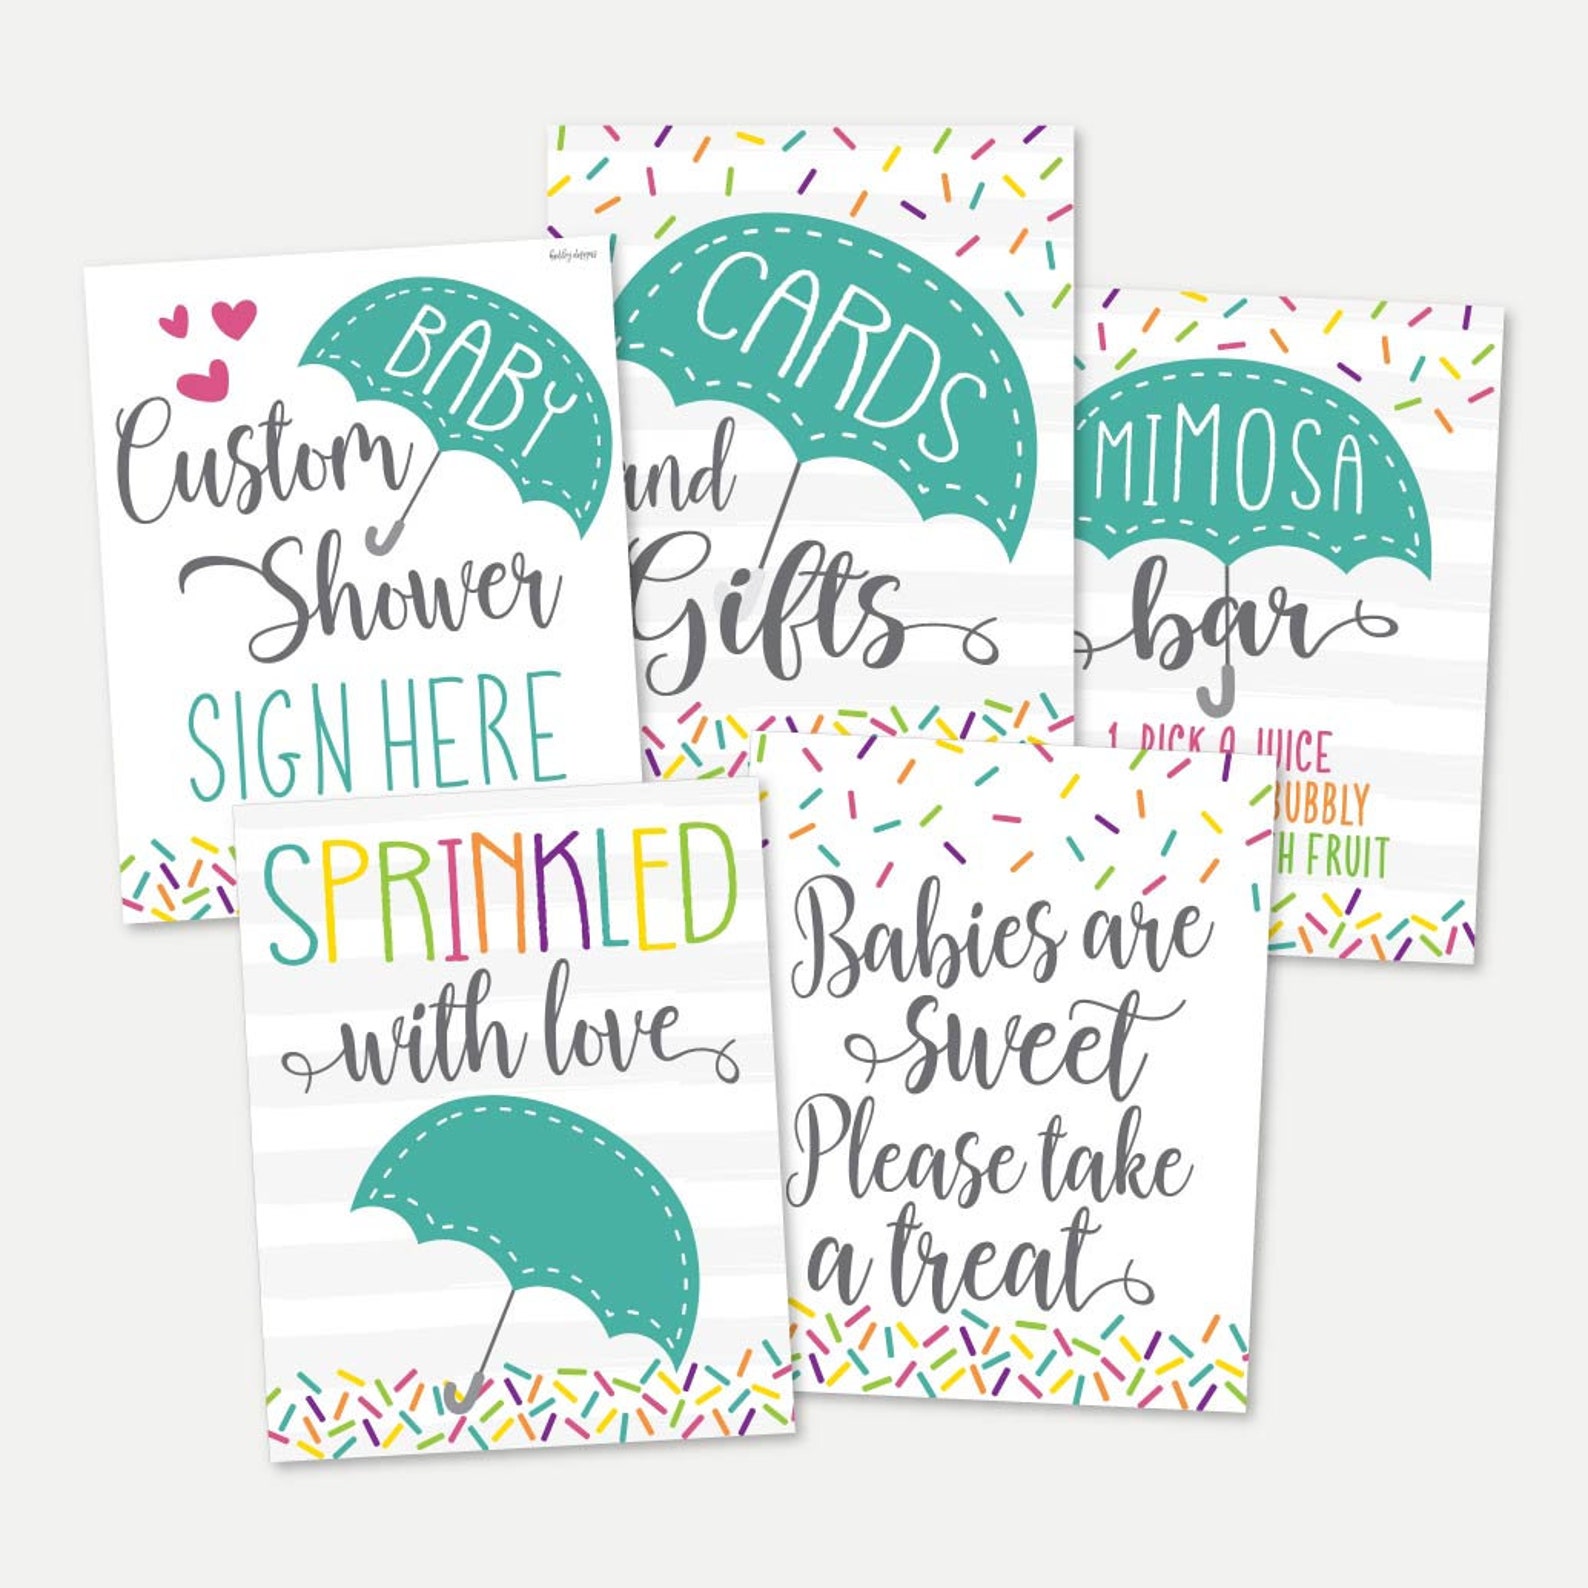 hadley designs
BABY
Custom
Shower
SIGN HERE
CARDS
and
Gifts
MIMOSA
bar
1 PICK A JUICE
BUBBLY
FRUIT
SPRINKLED
with love
Babies are
sweet
Please take
a treat